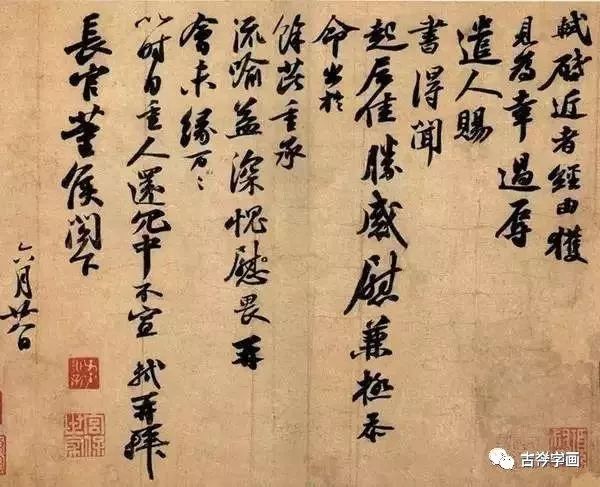 軾啓近者經由獲
見為幸過辱
遣人賜
書得聞
起居佳勝感慰兼極忝
命出於
餘芘重承
流喻益深愧慰畏再
會未緣万々
以时自重人還冗中不宣 軾再拜
長官董侯閣下
六月廿八日